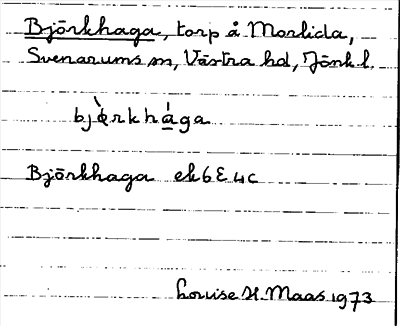 Björkhaga, torp å Morlida,
Svenarums sn, Västra hd, Jönk l.
bjæ̀rkhága
Björkhaga ek 6E 4c
Louise H. Maas 1973